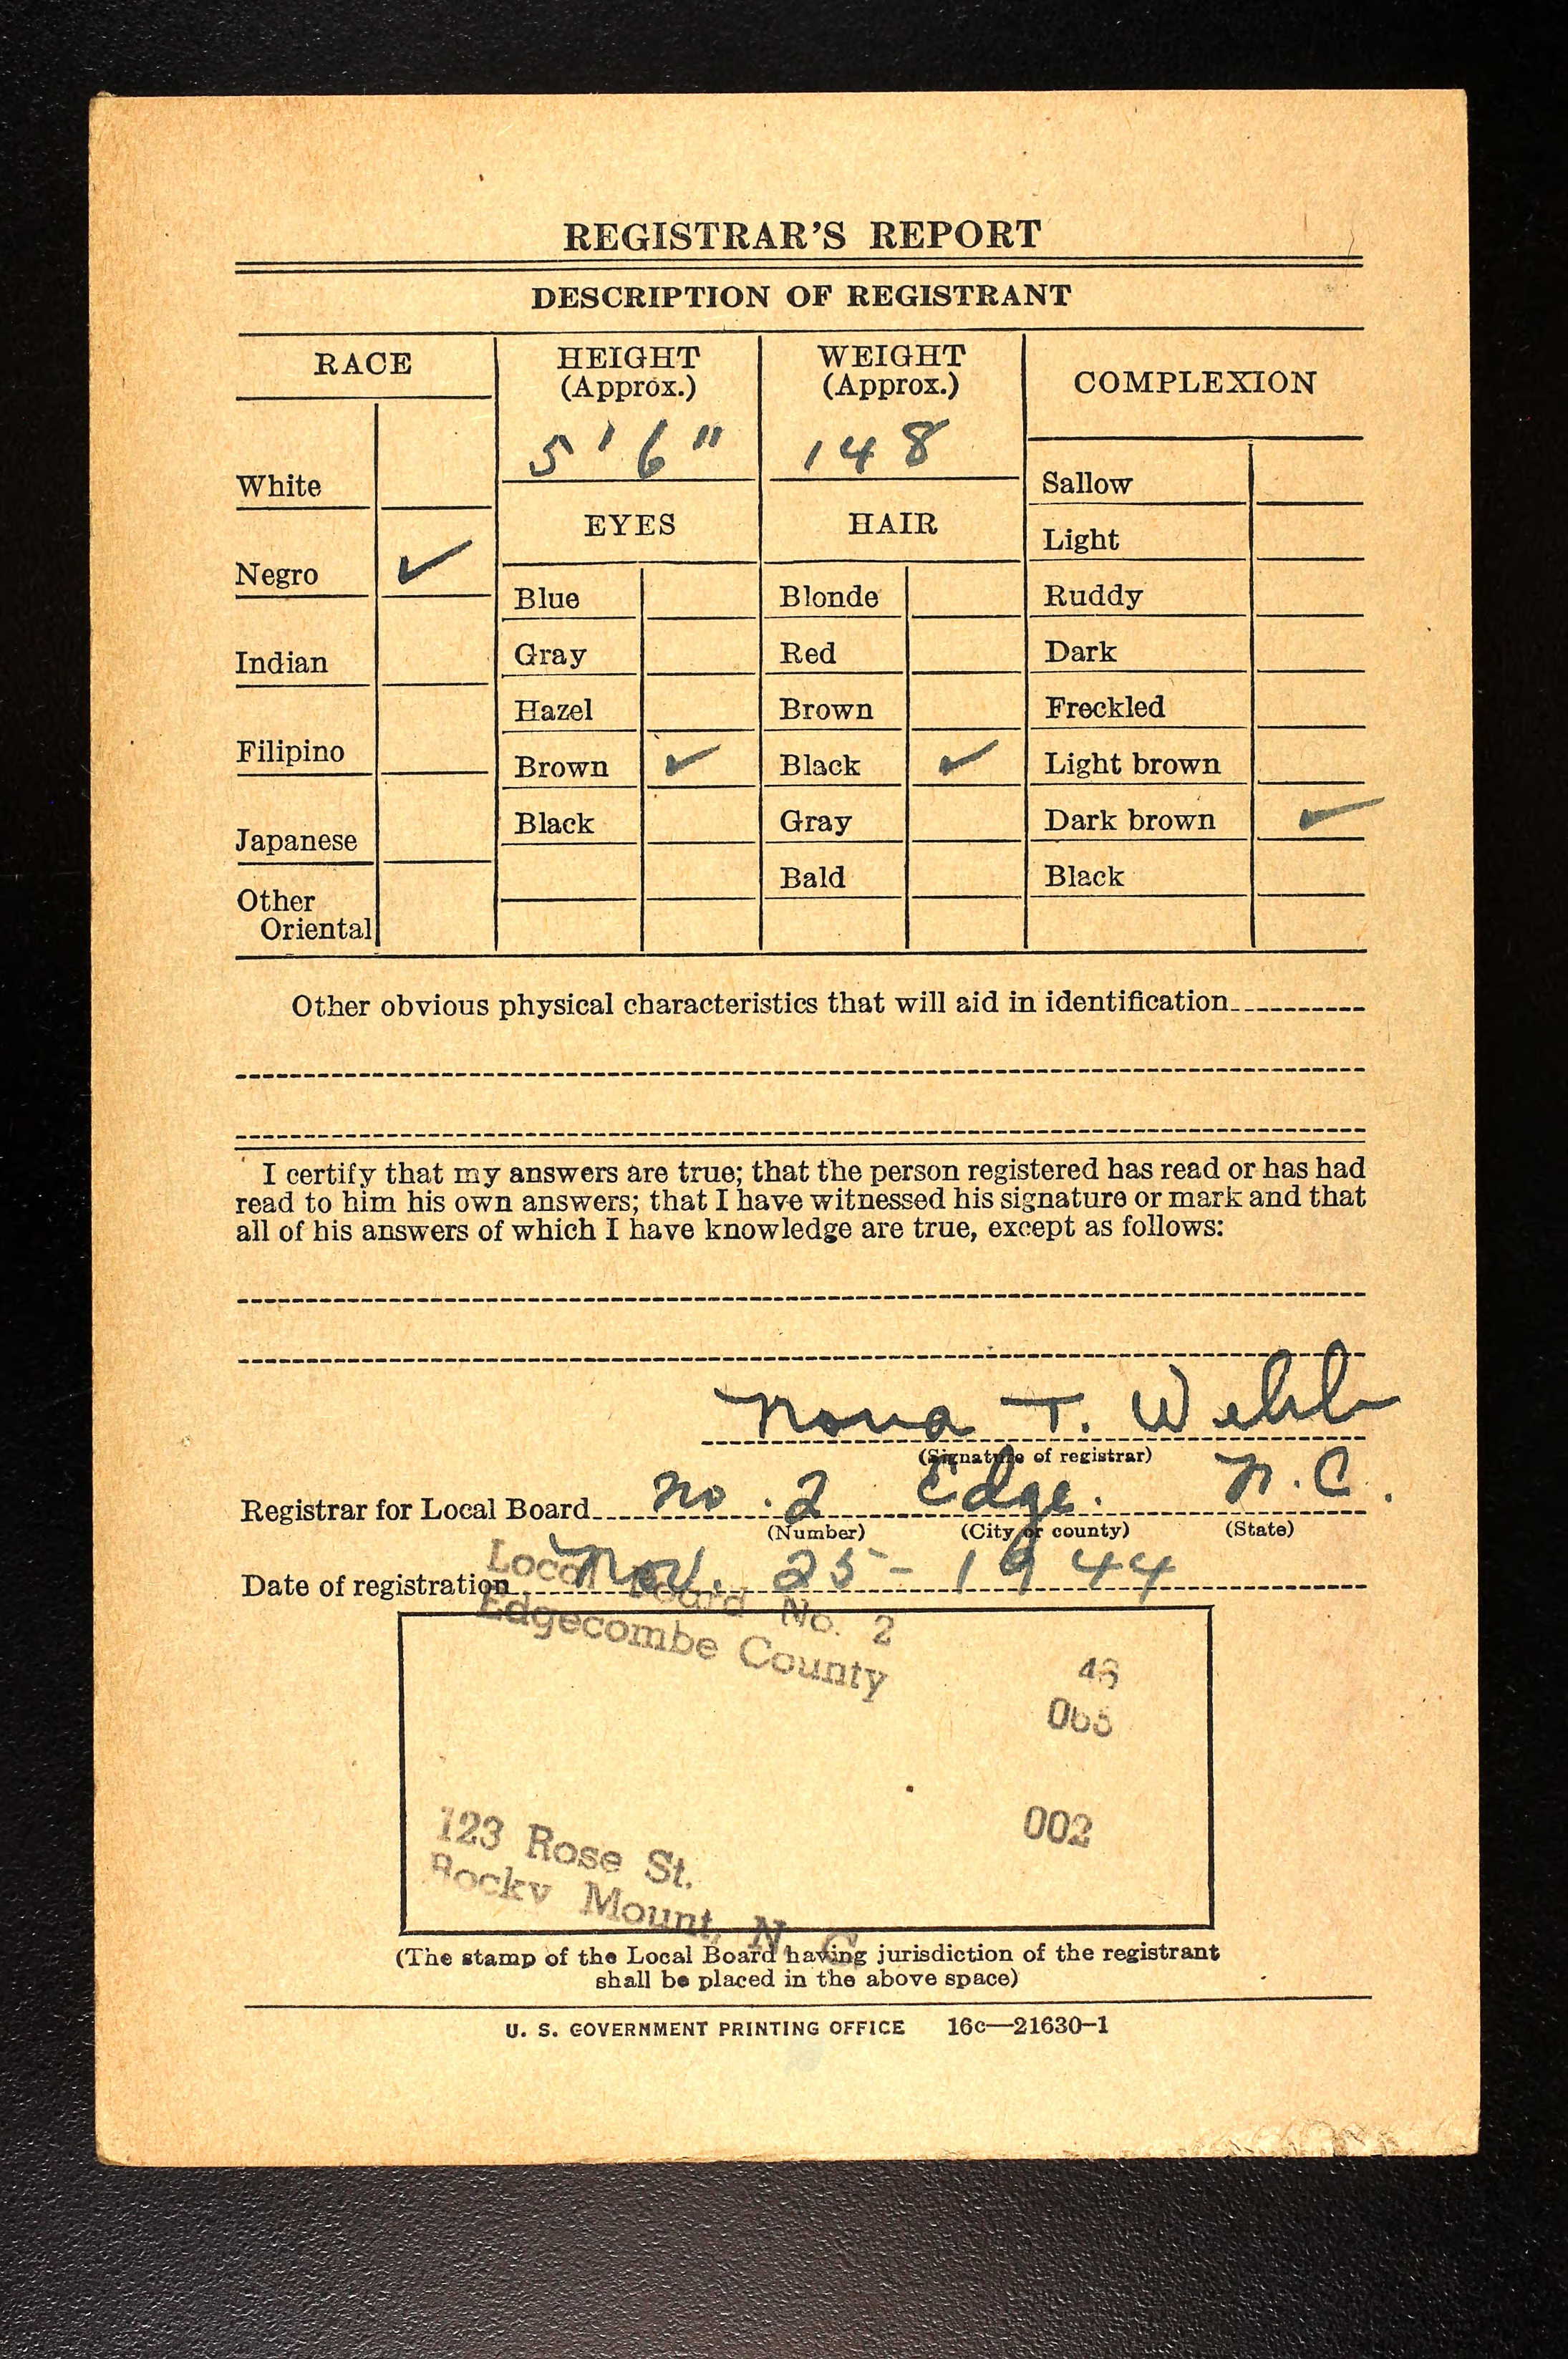 REGISTRAR'S REPORT
DESCRIPTION OF REGISTRANT
RACE
HEIGHT (Approx.)
WEIGHT (Approx.)
COMPLEXION
5' 6"
148
White
Sallow
EYES
HAIR
Light
Negro ✓
Blue
Blonde
Ruddy
Indian
Gray
Red
Dark
Hazel
Brown
Freckled
Filipino
Brown ✓
Black ✓
Light brown
Japanese
Black
Gray
Dark brown ✓
Bald
Black
Other
Oriental
Other obvious physical characteristics that will aid in identification
I certify that my answers are true; that the person registered has read or has had
read to him his own answers; that I have witnessed his signature or mark and that
all of his answers of which I have knowledge are true, except as follows:
Nova T. Webb
(Signature of registrar)
Registrar for Local Board No. 2 Edge. N.C.
(Number) (City or county) (State)
Date of registration Nov. 25-1944
Local Board No. 2
Edgecombe County
002
123 Rose St.
Rocky Mount, N. C.
(The stamp of the Local Board having jurisdiction of the registrant
shall be placed in the above space)
U. S. GOVERNMENT PRINTING OFFICE 16c—21630-1